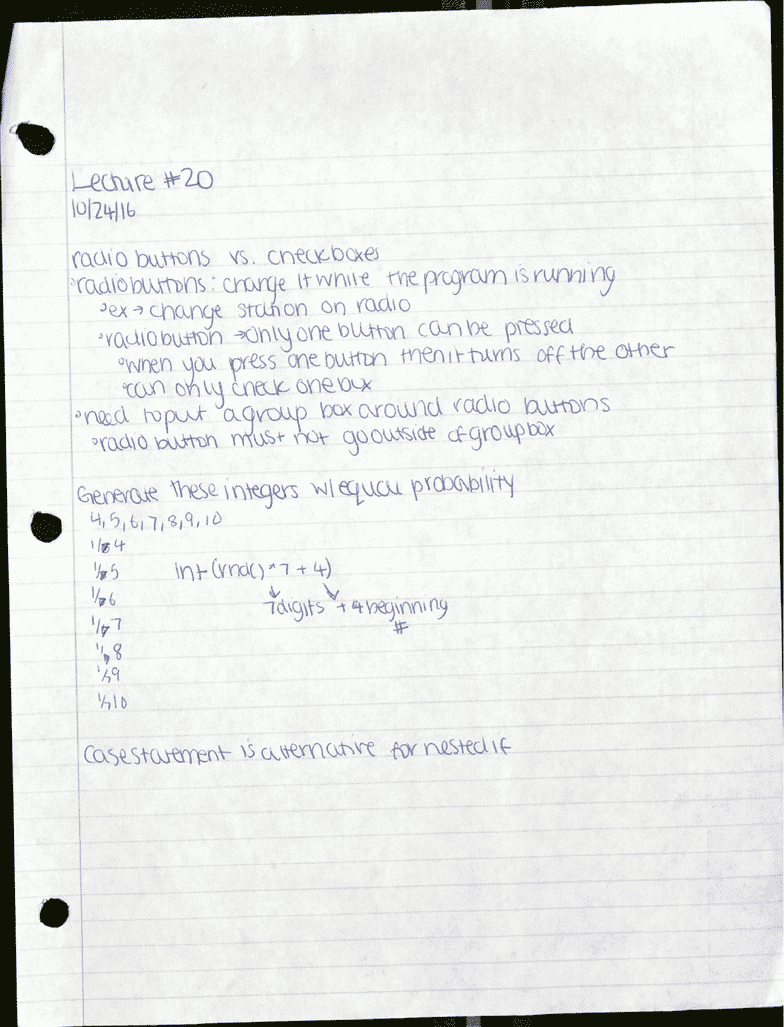 Lecture #20
10/24/16
radio buttons vs. checkboxes
◦radio buttons: change it while the program is running
◦ex → change station on radio
◦radio button → only one button can be pressed
◦when you press one button then it turns off the other
◦can only check one box
◦need to put a group box around radio buttons
◦radio button must not go outside of group box
Generate these integers w/ equal probability
4,5,6,7,8,9,10
1/7 4
1/7 5 int(rnd()*7+4)
1/7 6 7 digits + 4 beginning
1/7 7 #
1/7 8
1/7 9
1/7 10
Case statement is alternative for nested if